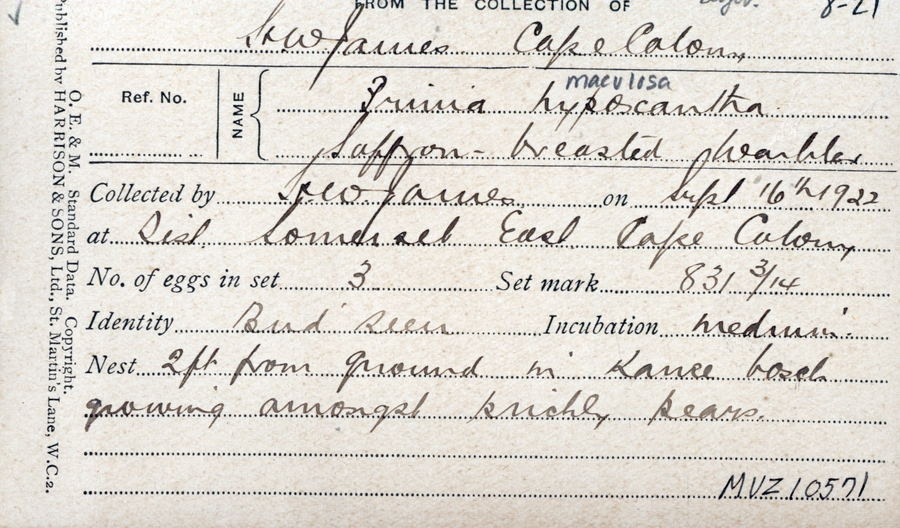 FROM THE COLLECTION OF
8-21
James Cape Colony
maculosa
Ref. No.
NAME
Prinia hypoxantha
Saffron-breasted Warbler
Collected by James on Sept 16th 1922
at Dist. Somerset East Cape Colony
No. of eggs in set 3 Set mark 831 3/14
Identity Bird seen Incubation medium.
Nest 2ft from ground in Karee bosch
growing amongst prickly pears.
MUZ 10571
O. E. & M. Standard Data. Copyright.
Published by HARRISON & SONS, Ltd., St. Martin's Lane, W.C.2.